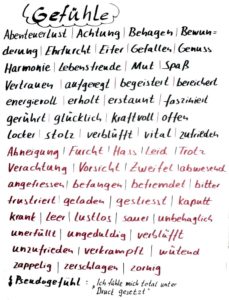 Gefühle
Abenteuerlust | Achtung | Behagen | Bewun-
derung | Ehrfurcht | Eifer | Gefallen | Genuss
Harmonie | Lebensfreude | Mut | Spaß
Vertrauen | aufgeregt | begeistert | bereichert
energievoll | erholt | erstaunt | fasziniert
gerührt | glücklich | kraftvoll | offen
locker | stolz | verblüfft | vital | zufrieden
Abneigung | Furcht | Hass | Leid | Trotz
Verachtung | Vorsicht | Zweifel | abwesend
angefressen | befangen | befremdet | bitter
frustriert | geladen | gestresst | kaputt
krank | leer | lustlos | sauer | unbehaglich
unerfüllt | ungeduldig | verblüfft
unzufrieden | verkrampft | wütend
zappelig | zerschlagen | zornig
Pseudogefühl: "Ich fühle mich total unter
Druck gesetzt"